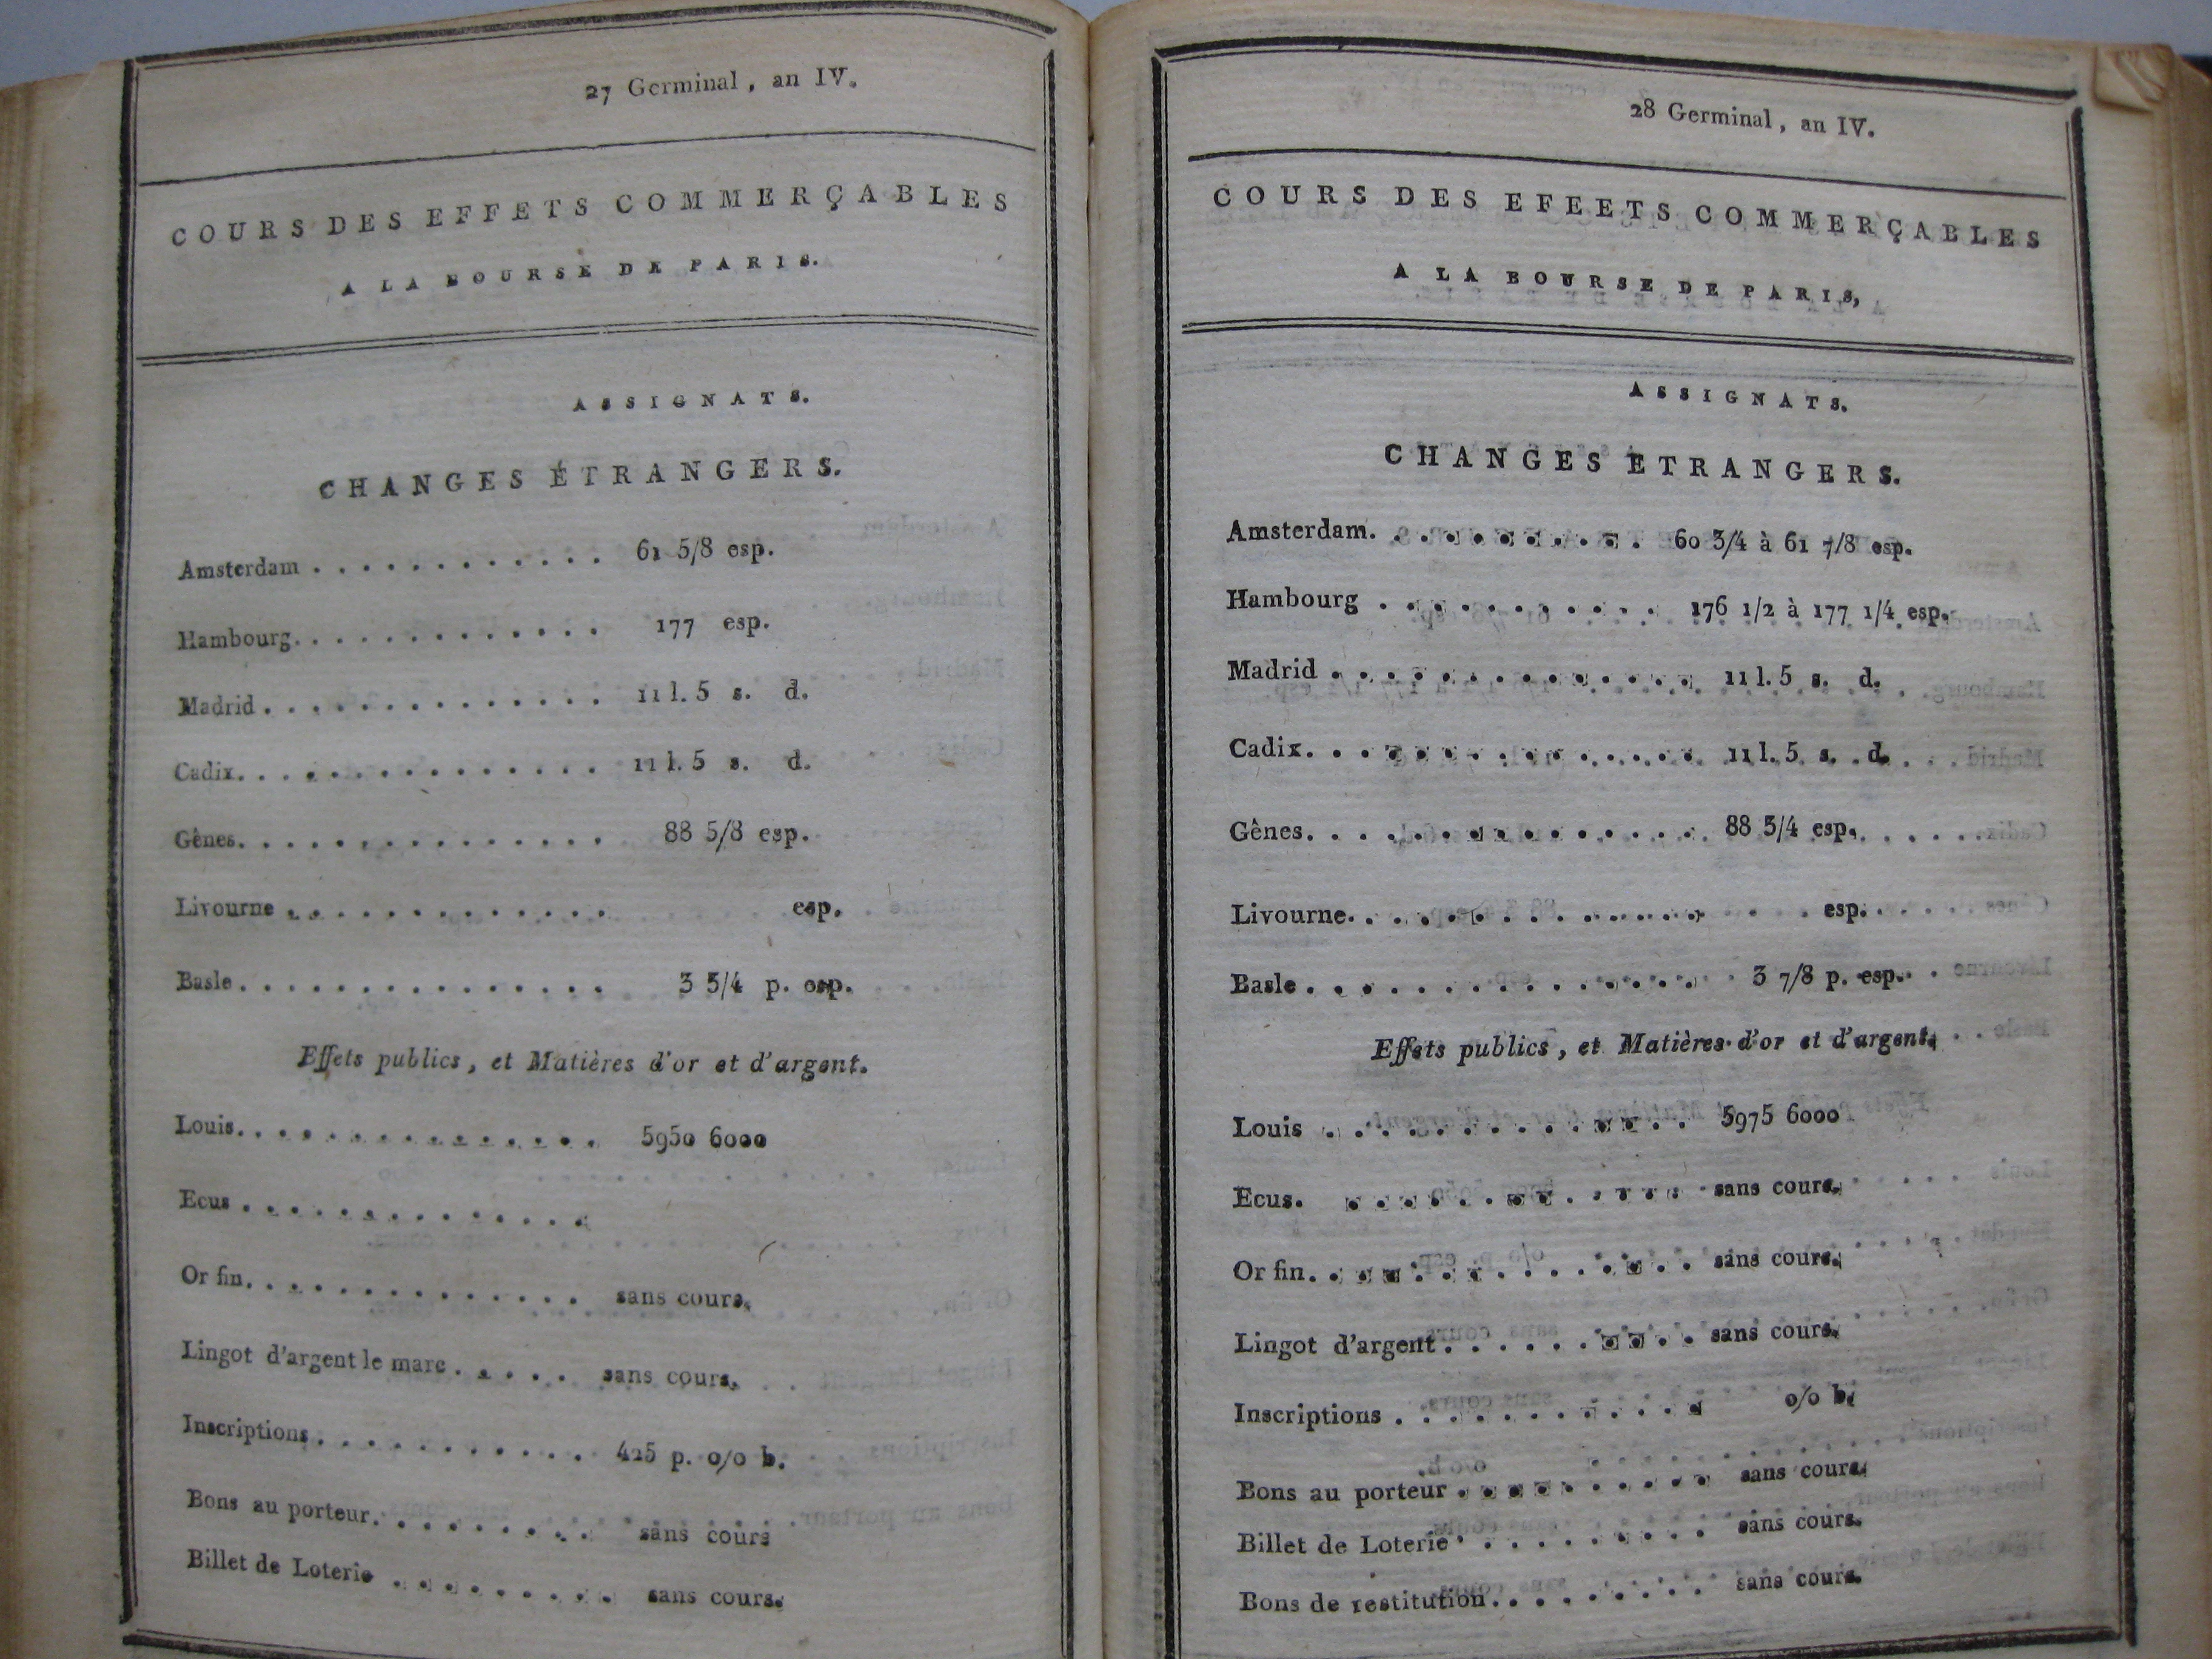 27 Germinal, an IV.
COURS DES EFFETS COMMERÇABLES
A LA BOURSE DE PARIS.
ASSIGNATS.
CHANGES ÉTRANGERS.
Amsterdam . . . . . . . . . . . . . 61 5/8 esp.
Hambourg. . . . . . . . . . . . . . 177 esp.
Madrid . . . . . . . . . . . . . . . 11 l. 5 s. d.
Cadix. . . . . . . . . . . . . . . . 11 l. 5 s. d.
Gênes. . . . . . . . . . . . . . . . 88 5/8 esp.
Livourne . . . . . . . . . . . . . . esp.
Basle . . . . . . . . . . . . . . . . 3 3/4 p. esp.
Effets publics, et Matières d'or et d'argent.
Louis. . . . . . . . . . . . . . . . 5950 6000
Ecus . . . . . . . . . . . . . . .
Or fin. . . . . . . . . . . . . . . sans cours.
Lingot d'argent le marc . . . . . sans cours.
Inscriptions . . . . . . . . . . . . 425 p. o/o b.
Bons au porteur. . . . . . . . . . sans cours
Billet de Loterie . . . . . . . . . sans cours.
28 Germinal, an IV.
COURS DES EFEETS COMMERÇABLES
A LA BOURSE DE PARIS,
ASSIGNATS.
CHANGES ETRANGERS.
Amsterdam. . . . . . . . . . . 60 3/4 à 61 7/8 esp.
Hambourg . . . . . . . . . . . 176 1/2 à 177 1/4 esp.
Madrid . . . . . . . . . . . . . . 11 l. 5 s. d.
Cadix. . . . . . . . . . . . . . . 11 l. 5 s. d.
Gênes. . . . . . . . . . . . . . . 88 3/4 esp.
Livourne. . . . . . . . . . . . . . esp.
Basle . . . . . . . . . . . . . . . 3 7/8 p. esp.
Effets publics, et Matières d'or et d'argent.
Louis . . . . . . . . . . . . . . 5975 6000
Ecus. . . . . . . . . . . . . . sans cours.
Or fin. . . . . . . . . . . . . . sans cours.
Lingot d'argent . . . . . . . . . . sans cours.
Inscriptions . . . . . . . . . . . . o/o b.
Bons au porteur . . . . . . . . . . sans cours.
Billet de Loterie . . . . . . . . . sans cours.
Bons de restitution. . . . . . . . . sans cours.